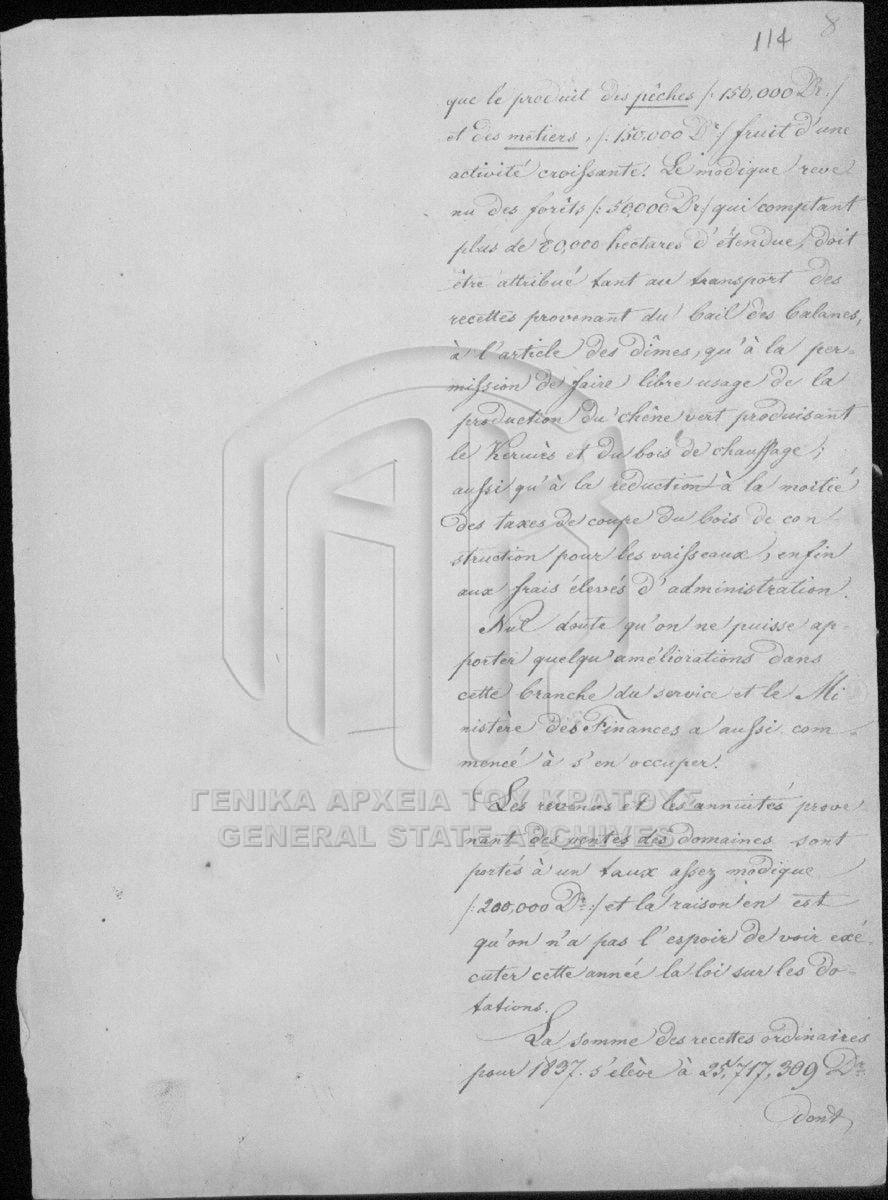 114 8
que le produit des pêches /:150,000 Dr:/
et des métiers, /:150.000 Dr:/ fruit d'une
activité croissante. Le modique reve
nu des forêts /:50,000 Dr:/ qui comptant
plus de 80,000 hectares d'étendue, doit
être attribué tant au transport des
recettes provenant du bail des balanes,
à l'article des dîmes, qu'à la per-
mission de faire libre usage de la
production du chêne vert produisant
le Kermès et du bois de chauffage;
aussi qu'à la reduction à la moitié
des taxes de coupe du bois de con
struction pour les vaisseaux, enfin
aux frais élevés d'administration.
Nul doute qu'on ne puisse ap-
porter quelqu'améliorations dans
cette branche du service et le Mi
nistère des Finances a aussi com
mencé à s'en occuper.
Les revenus et les annuités prove
nant des ventes des domaines sont
portés à un taux assez modique
/:200,000 Dr:/ et la raison en est
qu'on n'a pas l'espoir de voir exé
cuter cette année la loi sur les do-
tations.
La somme des recettes ordinaires
pour 1837. s'élève à 25,717,309 Dr
dont
ΓΕΝΙΚΑ ΑΡΧΕΙΑ ΤΟΥ ΚΡΑΤΟΥΣ
GENERAL STATE ARCHIVES